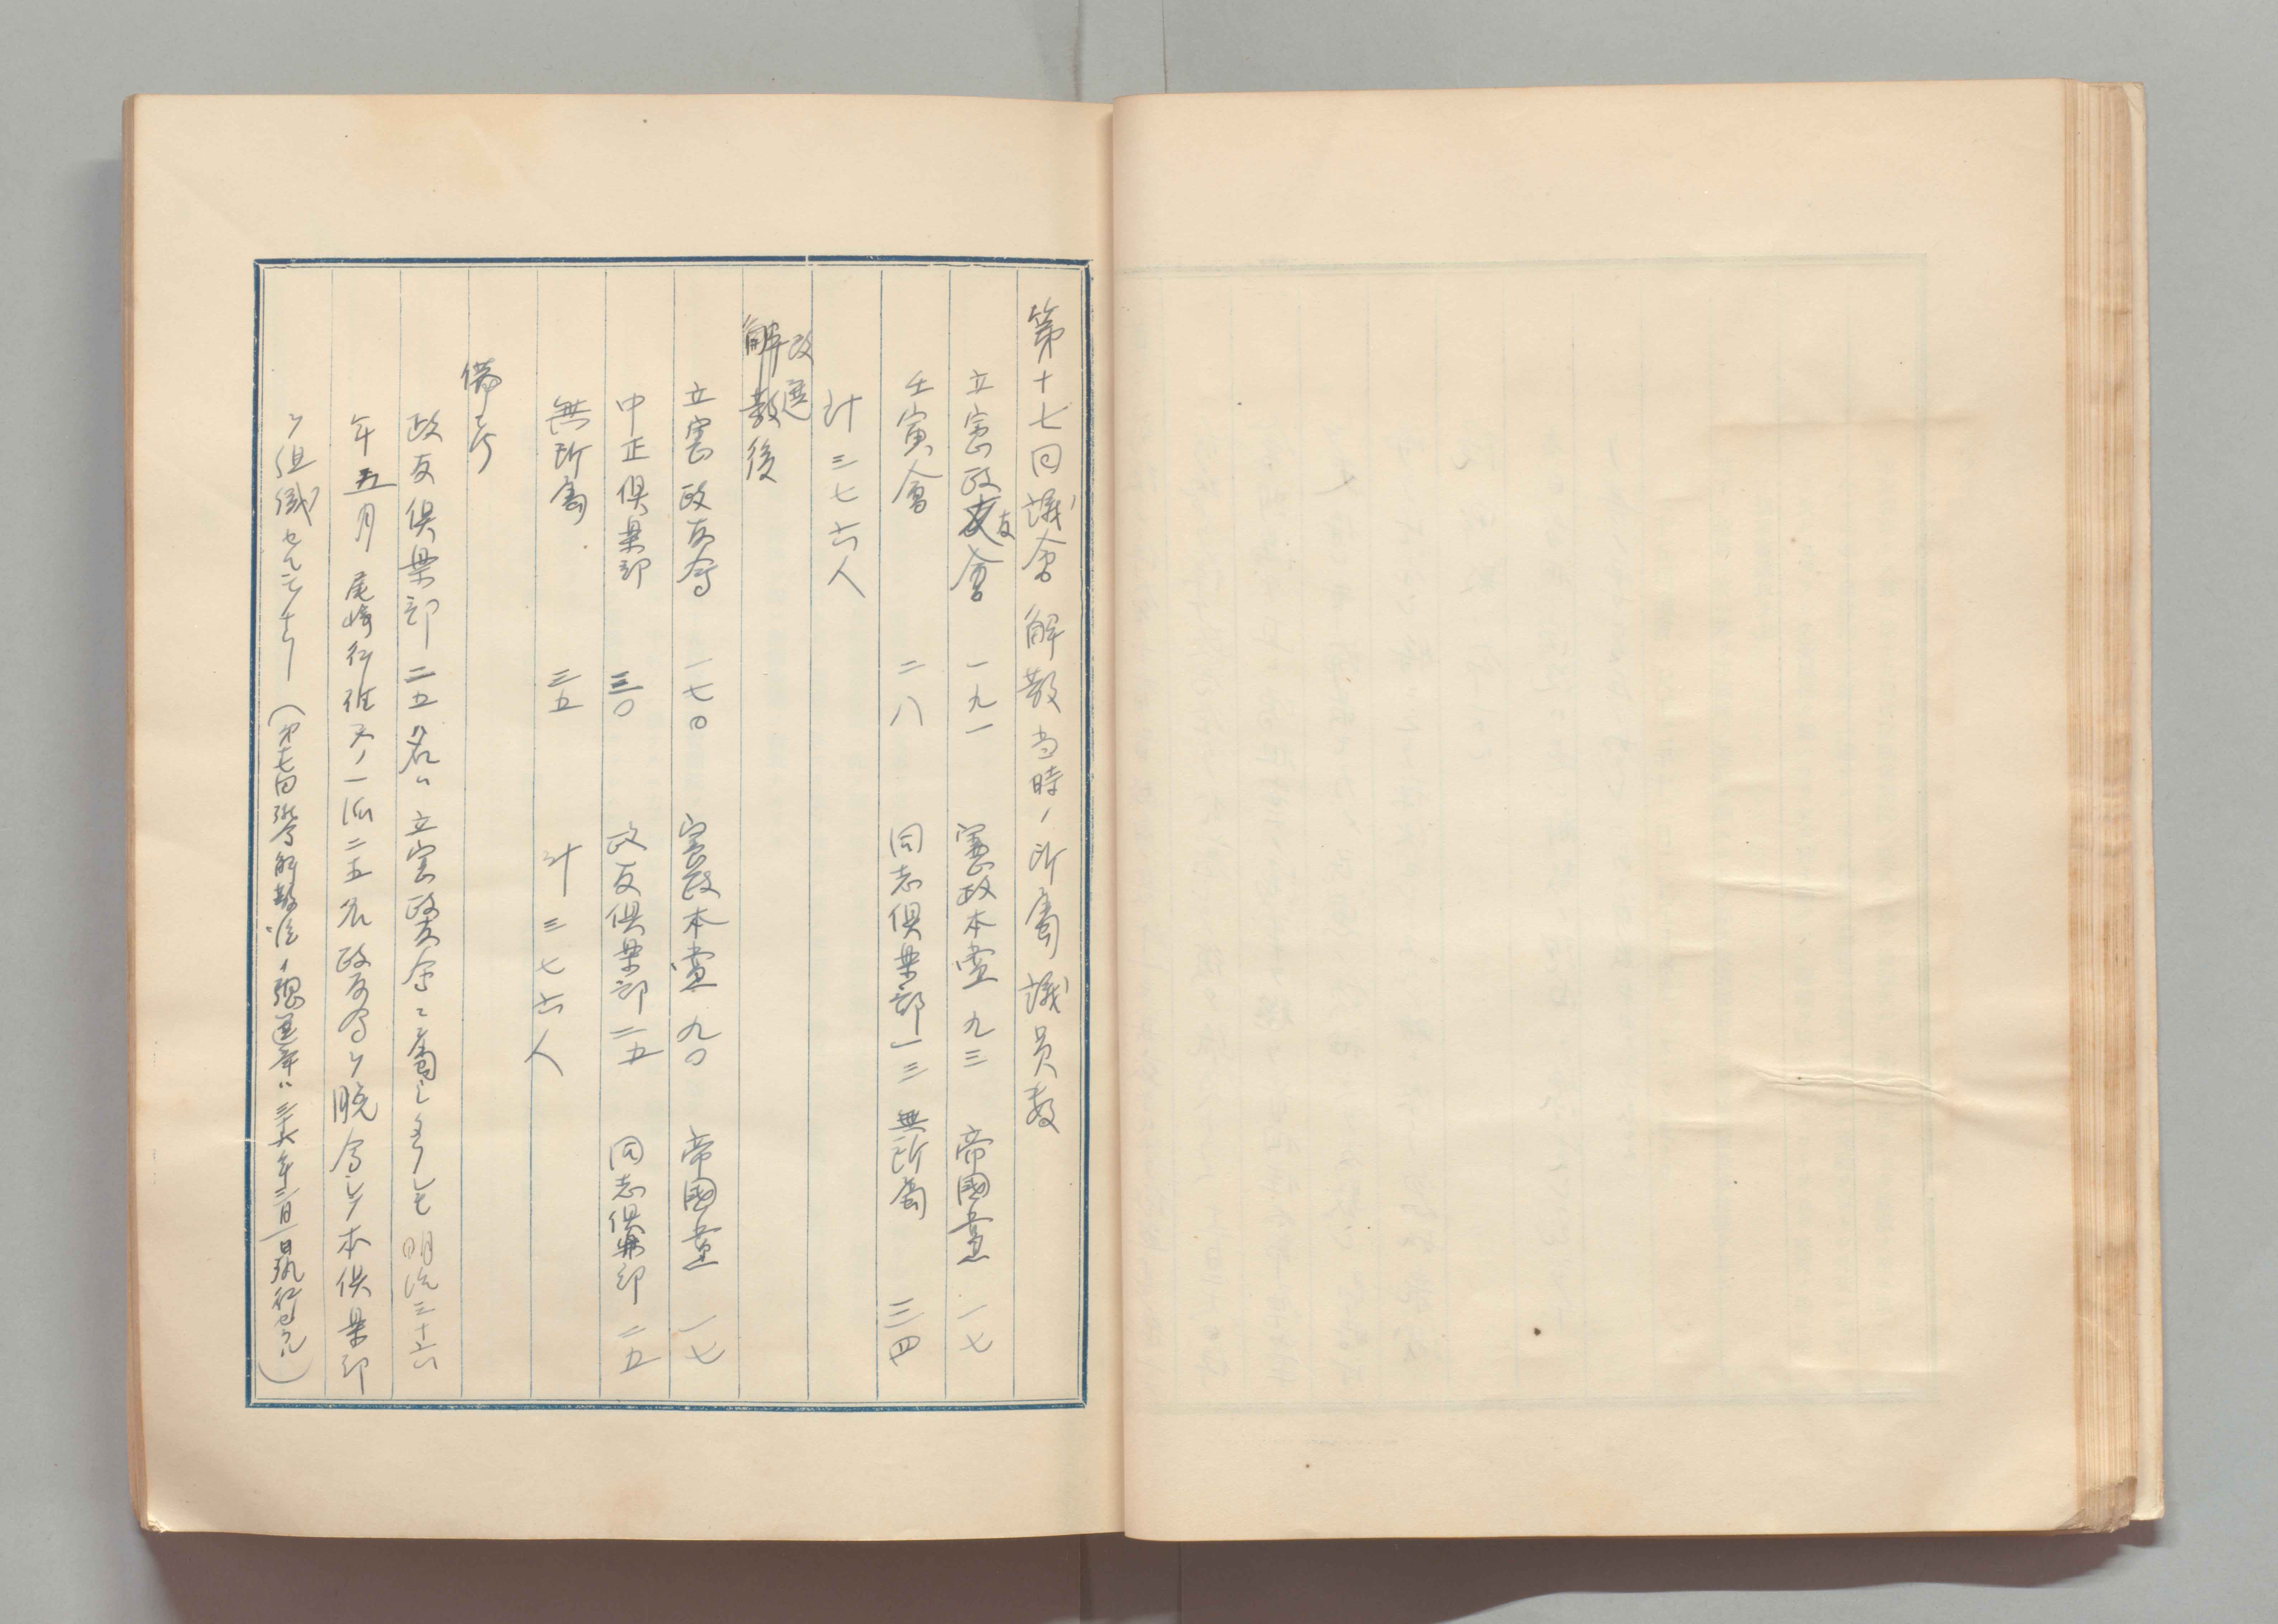 第十七回議会解散当時ノ所属議員数
立憲政友会 一九一 憲政本党 九三 帝國党 一七
壬寅會 二八 同志倶楽部 一三 無所属 三四
計三七六人
改選
解散後
立憲政友会 一七〇 憲政本党 九〇 帝國党 一七
中正倶楽部 三〇 政友倶楽部 二五 同志倶楽部 二五
無所属 三五 計三七六人
備考
政友倶楽部二五名ハ立憲政友会ニ属シ明治三十六
年五月尾崎行雄氏ノ一派二五名政友会ヲ脱会シ本倶楽部
ヲ組織セルモノナリ(第十七回議会解散後ノ総選挙ハ三十六年三月一日執行セラル)